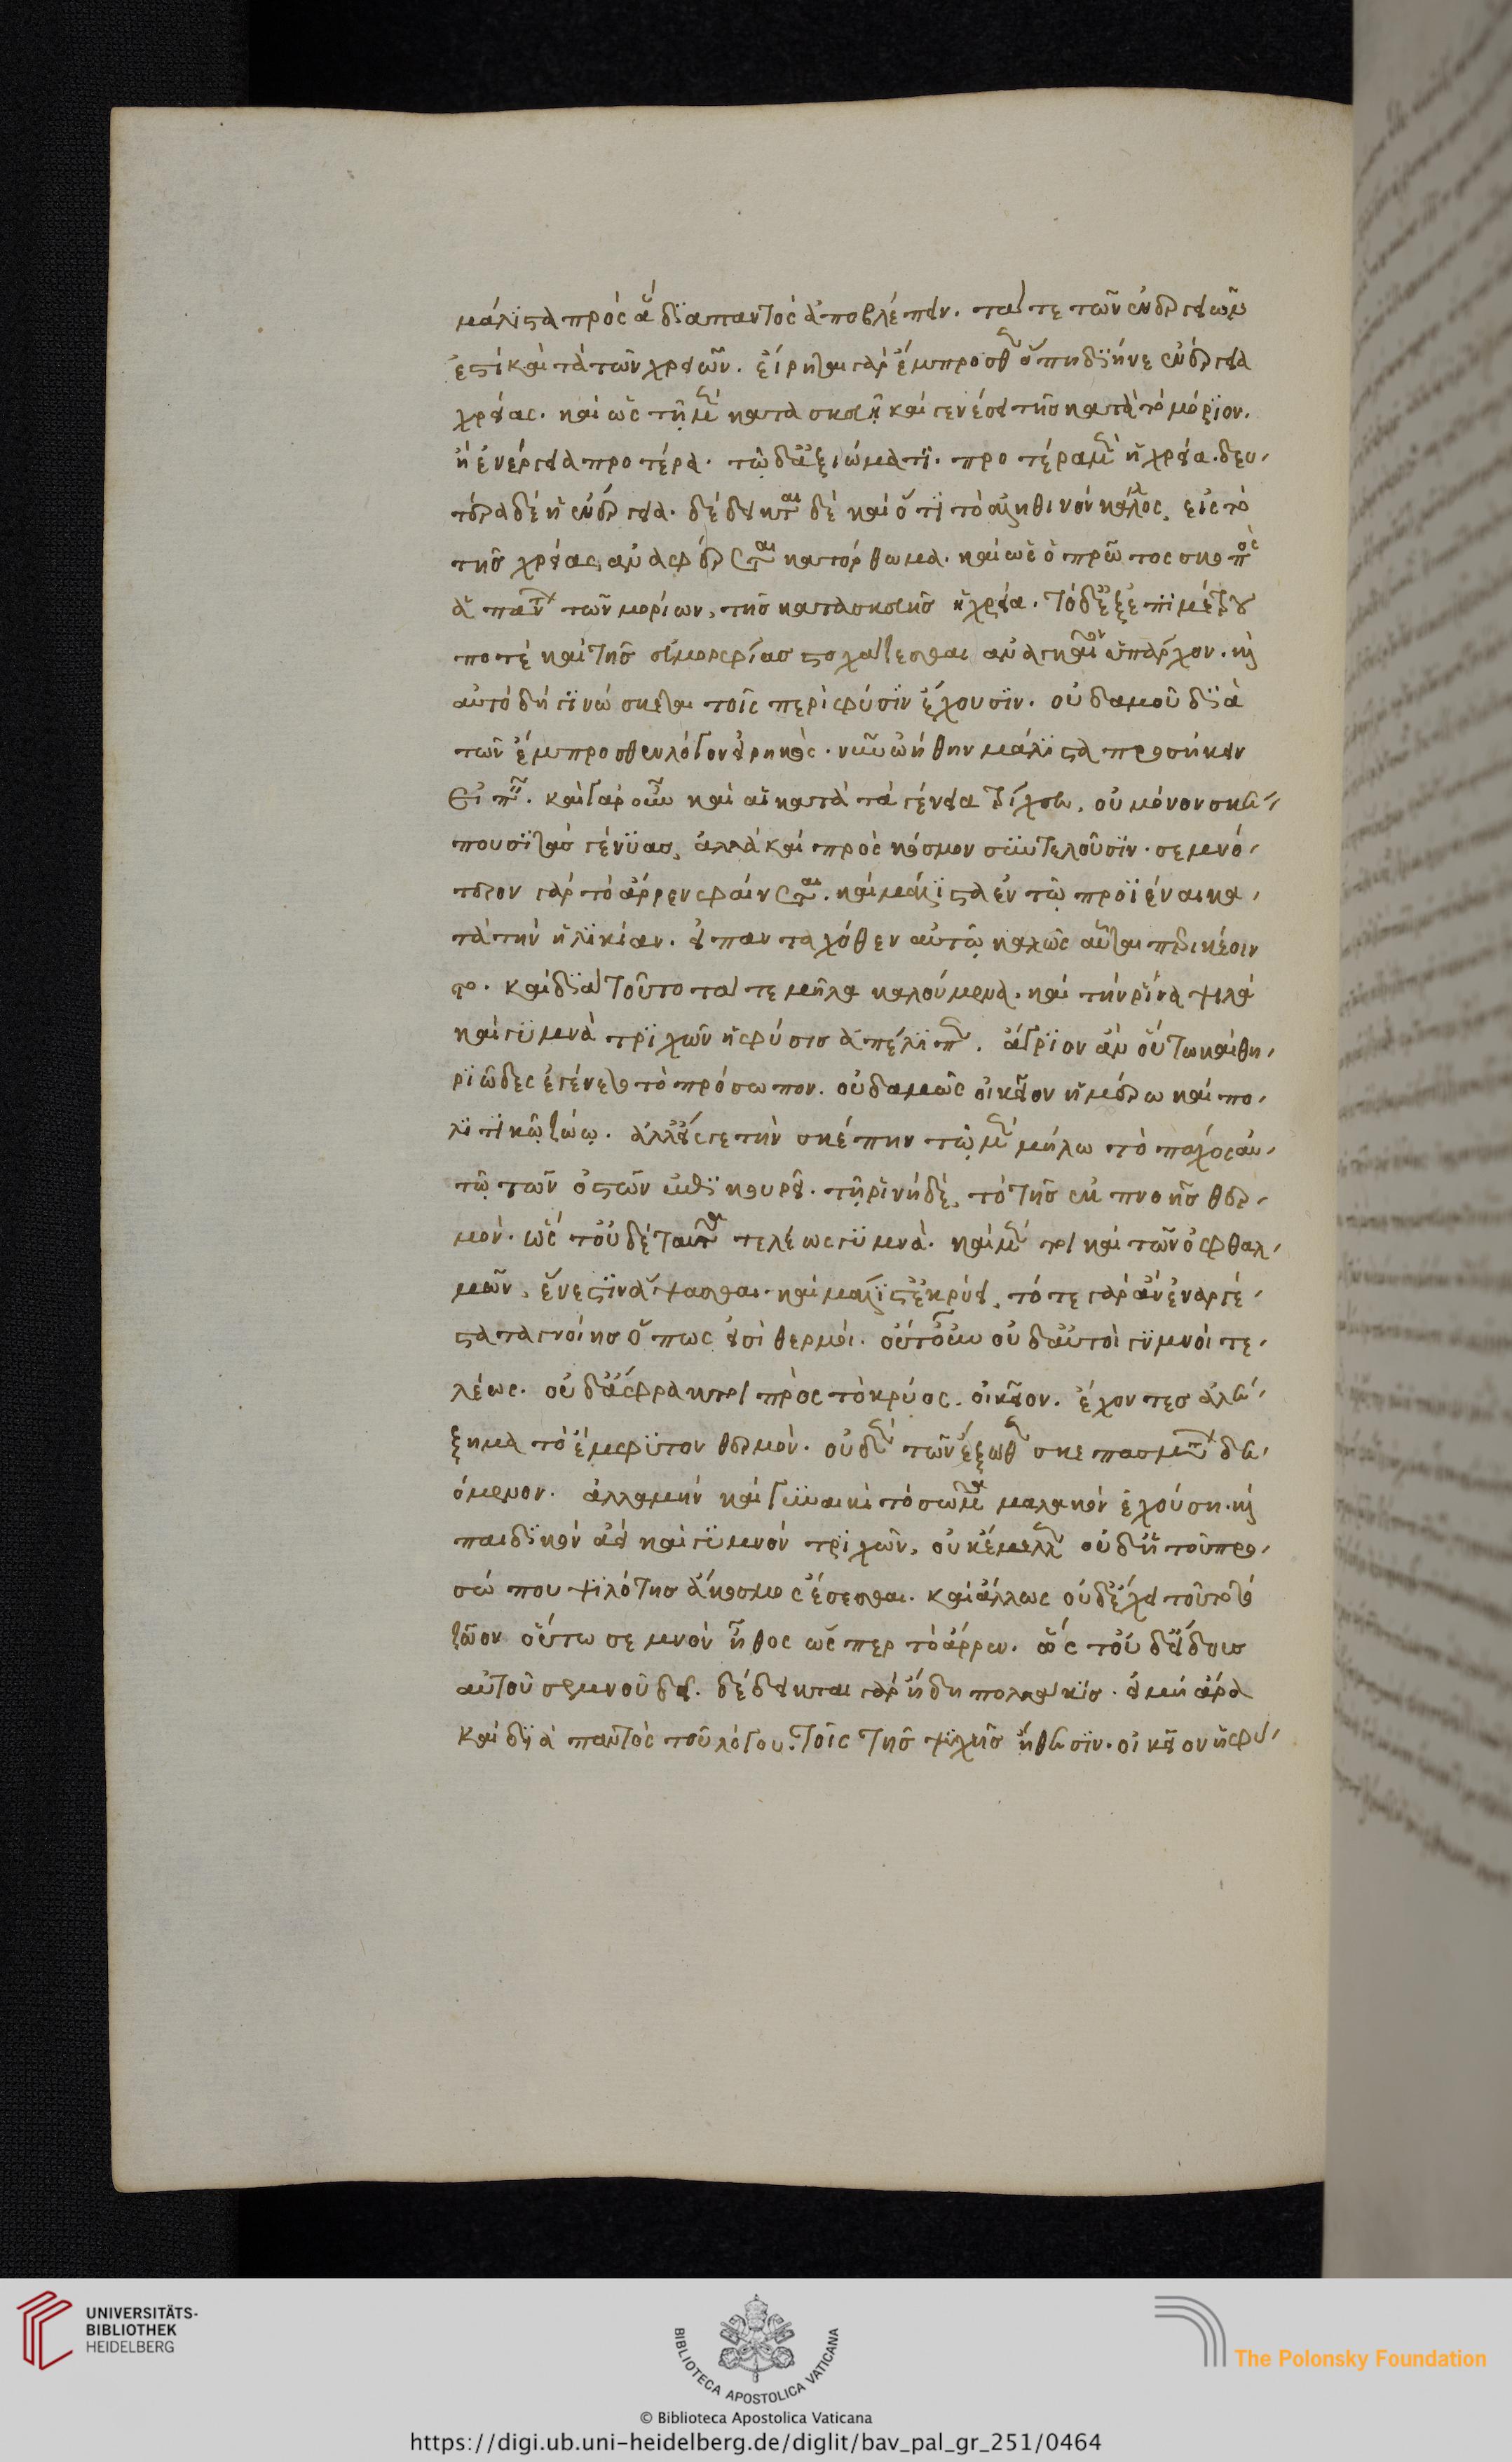 μάλιστα πρὸς ἃ διαπαντὸς ἀποβλέπειν. τά τε τῶν ἐνεργειῶν
ἐστὶ καὶ τὰ τῶν χρειῶν. εἴρηται γὰρ ἔμπροσθεν ὅπη διήνεγκε ἐνέργεια
χρείας. καὶ ὡς τῇ μὲν κατασκευῇ καὶ γενέσει τῆς κατὰ τὸ μόριον.
ἡ ἐνέργεια προτέρα. τῷ δ' ἀξιώματι. προτέρα μὲν ἡ χρεία. δευ-
τέρα δὲ ἡ ἐνέργεια. δέδεικται δὲ καὶ ὅτι τὸ ἀληθινὸν κάλλος, εἰς τὸ
τῆς χρείας ἀναφέρεται κατόρθωμα. καὶ ὡς ὁ πρῶτος σκοπὸς
ἁπάντων τῶν μορίων, τῆς κατασκευῆς ἡ χρεία. τὸ δ' ἐξ ἐπιμέτρου
ποτὲ καὶ τῆς εὐμορφίας στοχάζεσθαι ἀναγκαῖον ὑπάρχον. καὶ
αὐτὸ δὴ γινώσκεται τοῖς περὶ φύσιν ἔχουσιν. οὐδαμοῦ διὰ
τῶν ἔμπροσθεν λόγον εἰρηκὼς. νῦν ᾠήθην μάλιστα προσήκειν
εἰπεῖν. καὶ γὰρ οὖν καὶ αἱ κατὰ τὰ γένεια τρίχες, οὐ μόνον σκέ-
πουσι τὰς γένυας, ἀλλὰ καὶ πρὸς κόσμον συντελοῦσιν. σεμνό-
τερον γὰρ τὸ ἄρρεν φαίνεται. καὶ μάλιστα ἐν τῷ προϊέναι κα-
τὰ τὴν ἡλικίαν. εἰ πανταχόθεν αὐτῷ καλῶς αὗται περικέοιν
το. καὶ διὰ τοῦτο τά τε μῆλα καλούμενα. καὶ τὴν ῥῖνα ψιλὰ
καὶ γυμνὰ τριχῶν ἡ φύσις ἀπέλιπεν. ἄγριον ἂν οὕτω καὶ θη-
ριῶδες ἐγένετο τὸ πρόσωπον. οὐδαμῶς οἰκεῖον ἡμέρω καὶ πο-
λιτικῷ ζώῳ. ἀλλ' εἴς γε τὴν σκέπην τῷ μὲν μήλω τὸ πάχος αὐ-
τῷ τῶν ὀστῶν ἐπικουρεῖ. τῇ ῥινὶ δὲ, τὸ τῆς ἐκπνοῆς θερ-
μόν. ὥς τ' οὐδὲ ταῦτα τελέως γυμνὰ. καὶ μέντοι καὶ τῶν ὀφθαλ-
μῶν, ἔνεστιν ἅψασθαι. καὶ μάλιστ' ἐν κρύει, τότε γὰρ ἂν ἐναργέ-
στατα γνοίης ὅπως εἰσὶ θερμοί. οὔτ' οὖν οὐδ' αὐτοὶ γυμνοὶ τε-
λέως. οὐδ' ἄφρακτοι πρὸς τὸ κρύος. οἰκεῖον. ἔχοντες ἀλέ-
ξημα τὸ ἔμφυτον θερμὸν. οὐδὲν τῶν ἔξωθεν σκεπασμάτων δε-
όμενον. ἀλλὰ μὴν καὶ γυναικὶ τὸ σῶμα μαλακὸν ἐχούση. καὶ
παιδικὸν ἀεὶ καὶ γυμνὸν τριχῶν, οὐκ ἔμελλεν οὐδ' ἡ τοῦ προ-
σώπου ψιλότης ἄκοσμος ἔσεσθαι. καὶ ἄλλως οὐδ' ἔχει τοῦτο τὸ
ζῶον οὕτω σεμνὸν ἦθος ὥσπερ τὸ ἄρρεν. ὥς τ' οὐδ' εἴδους
αὐτοῦ σεμνοῦ δεῖ. δέδεικται γὰρ ἤδη πολλάκις. εἰ μὴ ἄρα
καὶ διὰ παντὸς τοῦ λόγου. τοῖς τῆς ψυχῆς ἤθεσιν. οἰκεῖον ἡ φύ-
UNIVERSITÄTS-
BIBLIOTHEK
HEIDELBERG
BIBLIOTECA APOSTOLICA VATICANA
The Polonsky Foundation
© Biblioteca Apostolica Vaticana
https://digi.ub.uni-heidelberg.de/diglit/bav_pal_gr_251/0464